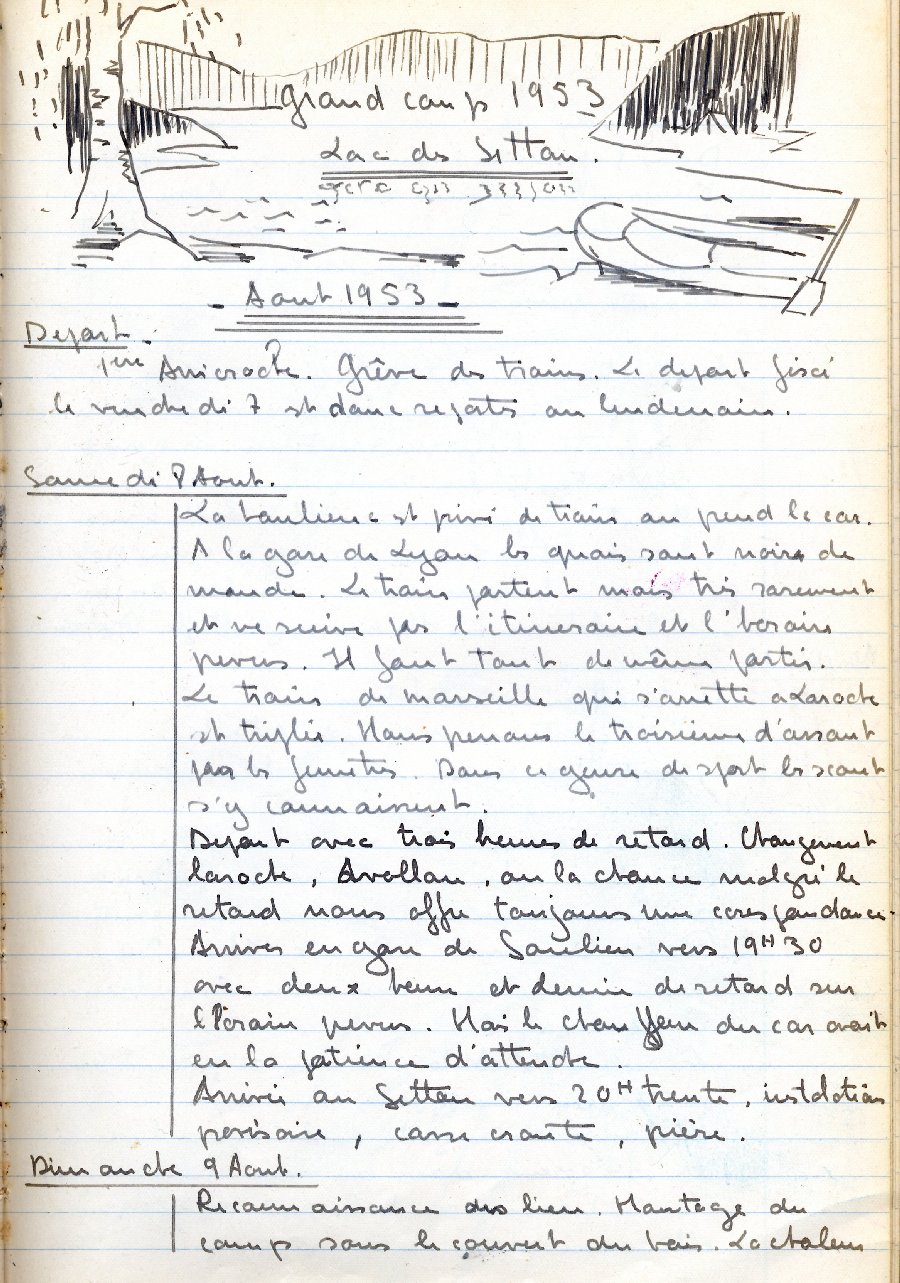 Grand camp 1953
Lac des Settons.
Aout 1953
Depart.
1ère Anicroche. Grêve des trains. Le depart fixé
le vendredi 7 est donc reporté au lendemain.
Samedi 8 Aout.
La banlieue est privé de trains on prend le car.
A la gare de Lyon les quais sont noirs de
monde. Le train partent mais très rarement
et ne suive pas l'itineraire et l'horaire
prevus. Il faut tout de même partir.
Le train de marseille qui s'arrette a Laroche
est triplé. Nous prenons le troisieme d'assaut
par les fenetres. Dans ce genre de sport les scout
s'y connaissent.
Depart avec trois heures de retard. Changement
laroche, Avallon, ou la chance malgré le
retard nous offre toujours une corespondance.
Arrives en gare de Saulieu vers 19H30
avec deux heure et demie de retard sur
l'horaire prevus. Mais le chauffeur du car avait
eu la patience d'attendre.
Arrivée au Settons vers 20H trente, installation
provisoire, casse croute, pière.
Dimanche 9 Aout.
Reconnaissance des lieu. Montage du
camp sous le couvert du bois. La chaleur